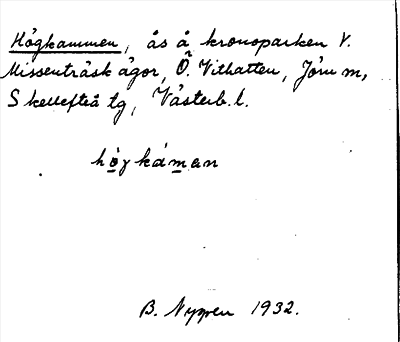 Högkammen, ås å kronoparken V.
Missenträsk ägor, Ö. Vithatten, Jörn m,
Skellefteå tg, Västerb. l.
hö̱gkám̱an
B. Nyppen 1932.